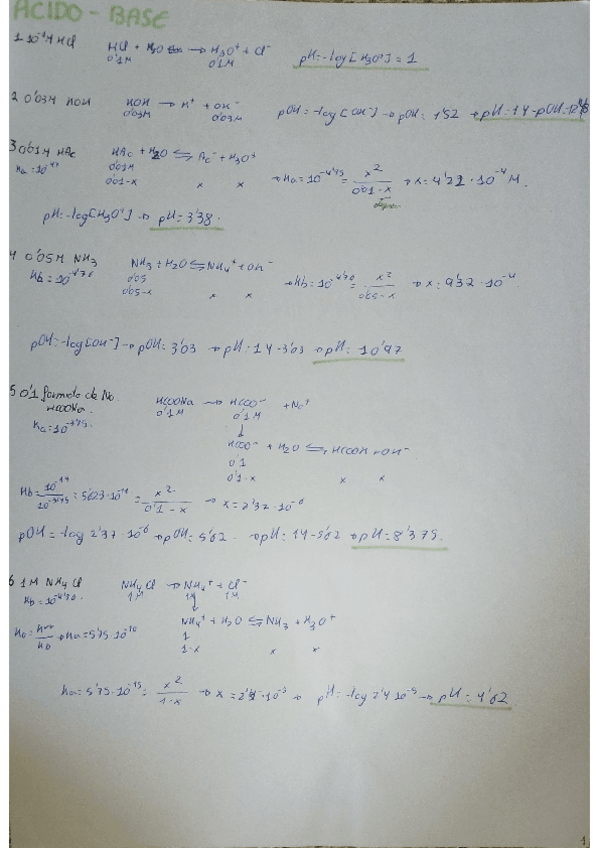 ACIDO - BASE
1 10⁻¹M HCl HCl + H₂O → H₃O⁺ + Cl⁻ pH = -log[H₃O⁺] = 1
0'1M 0'1M
2 0'03M KOH KOH → K⁺ + OH⁻ pOH = -log[OH⁻] → pOH = 1'52 → pH = 14 - pOH =
0'03M 0'03M
3 0'01M HAc HAc + H₂O ⇌ Ac⁻ + H₃O⁺
0'01M → Ka = 10⁻⁴'⁷⁵ = x²/0'01-x → x = 4'22 · 10⁻⁴ M.
0'01-x x x
pH = -log[H₃O⁺] → pH = 3'38.
4 0'05M NH₃ NH₃ + H₂O ⇌ NH₄⁺ + OH⁻
Kb = 10⁻⁴'⁷⁶ 0'05 → Kb = 10⁻⁴'⁷⁶ = x²/0'05-x → x = 9'32 · 10⁻⁴
0'05-x x x
pOH = -log[OH⁻] → pOH = 3'03 → pH = 14 - 3'03 → pH = 10'97
5 0'1 formiato de Na. HCOONa → HCOO⁻ + Na⁺
HCOONa. 0'1M 0'1M
Ka = 10⁻³'⁷⁵ ↓
HCOO⁻ + H₂O ⇌ HCOOH + OH⁻
0'1
0'1-x x x
Kb = 10⁻¹⁴/10⁻³'⁷⁵ = 5'623 · 10⁻¹¹ = x²/0'1-x → x = 2'37 · 10⁻⁶
pOH = -log 2'37 · 10⁻⁶ → pOH = 5'62. → pH = 14 - 5'62 → pH = 8'375.
6 1M NH₄Cl NH₄Cl → NH₄⁺ + Cl⁻
Kb = 10⁻⁴'⁷⁶ 1M 1M 1M
NH₄⁺ + H₂O ⇌ NH₃ + H₃O⁺
Ka = Kw/Kb → Ka = 5'75 · 10⁻¹⁰ 1
1-x x x
Ka = 5'75 · 10⁻¹⁰ = x²/1-x → x = 2'4 · 10⁻⁵ → pH = -log 2'4 · 10⁻⁵ → pH = 4'62.
1